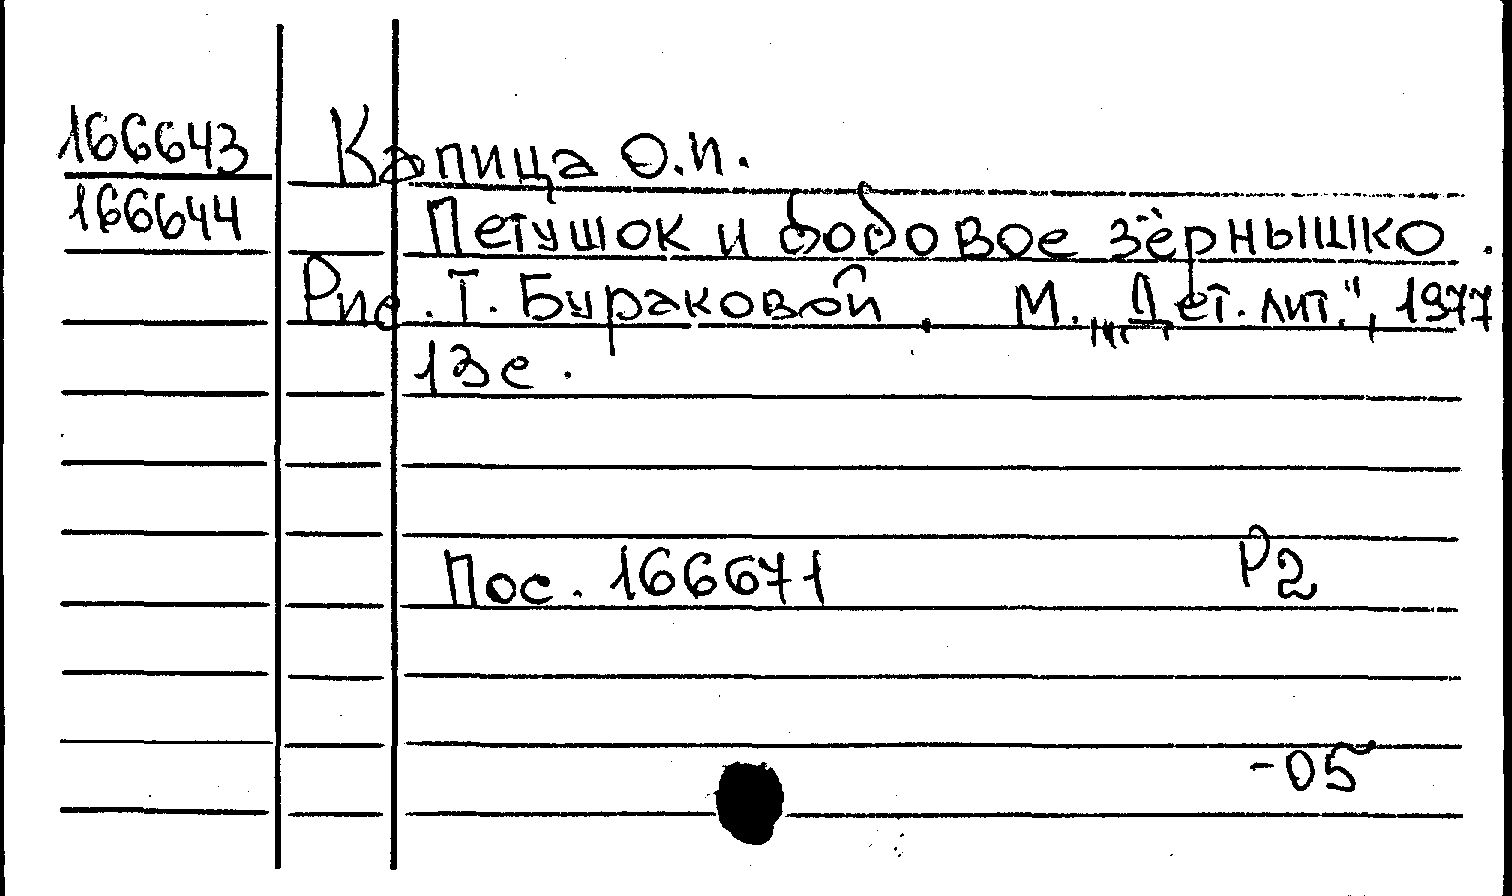 166643 Капица О.И.
166644 Петушок и бобовое зёрнышко.
Рис. Т. Бураковой. М., „Дет. лит.", 1977
13с.
Пос. 166671 Р2
-05